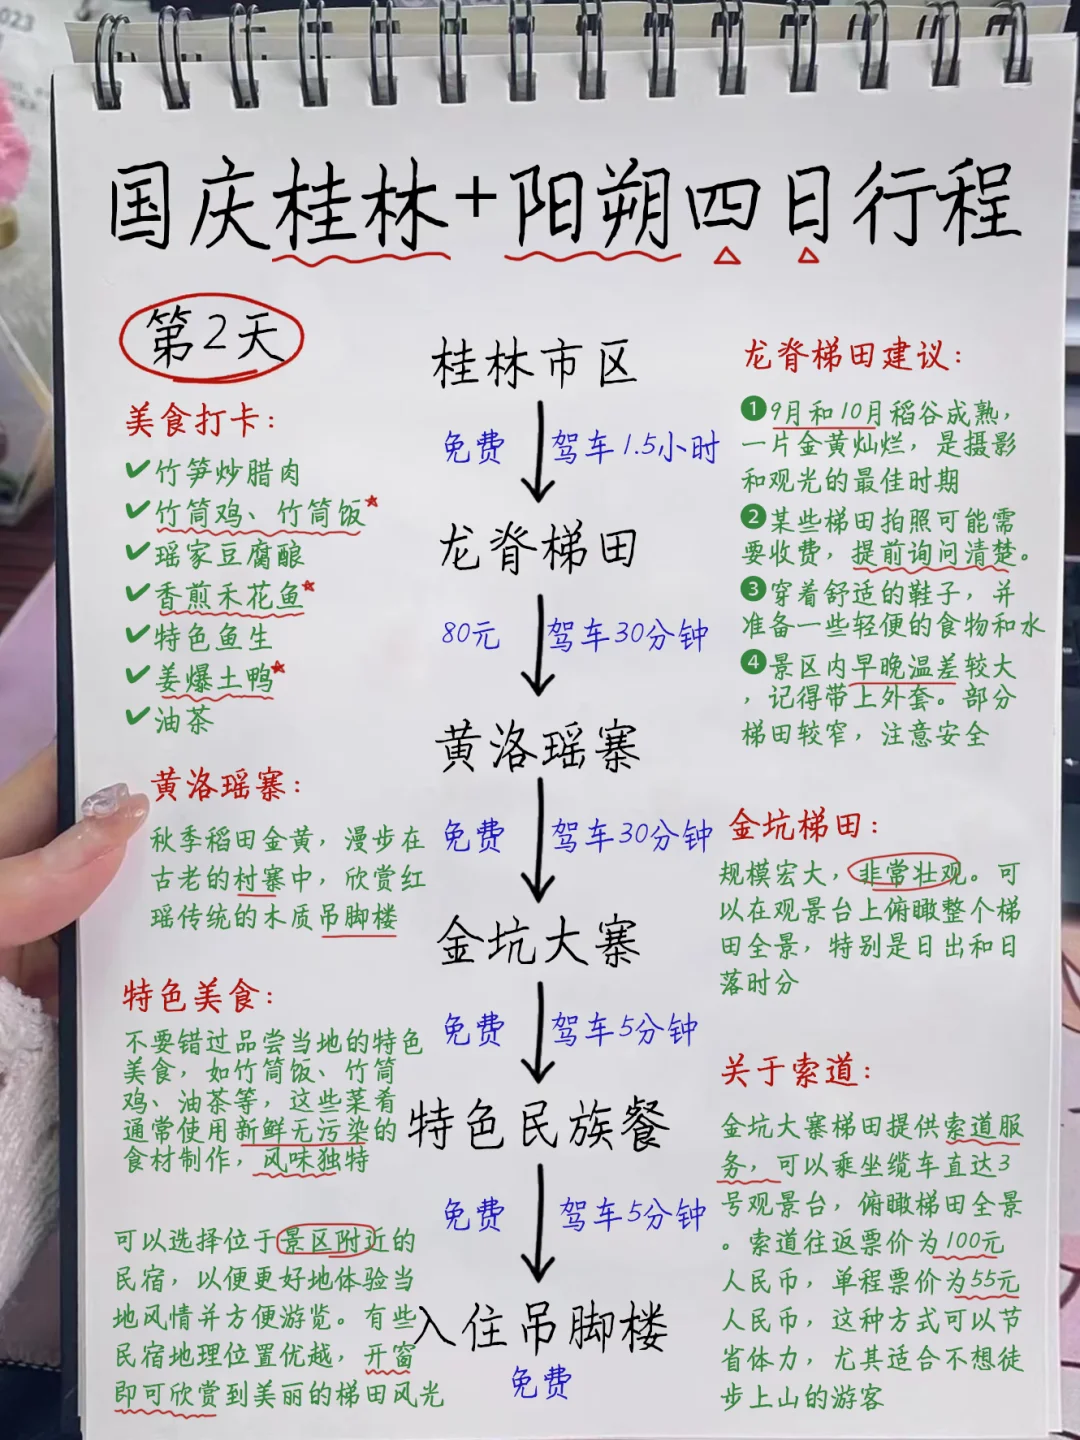 023
国庆桂林+阳朔四日行程
第2天
美食打卡：
✔竹笋炒腊肉
✔竹筒鸡、竹筒饭
✔瑶家豆腐酿
✔香煎禾花鱼
✔特色鱼生
✔姜爆土鸭
✔油茶
黄洛瑶寨：
秋季稻田金黄，漫步在
古老的村寨中，欣赏红
瑶传统的木质吊脚楼
特色美食：
不要错过品尝当地的特色
美食，如竹筒饭、竹筒
鸡、油茶等，这些菜肴
通常使用新鲜无污染的
食材制作，风味独特
可以选择位于景区附近的
民宿，以便更好地体验当
地风情并方便游览。有些
民宿地理位置优越，开窗
即可欣赏到美丽的梯田风光
桂林市区
免费 驾车1.5小时
龙脊梯田
80元 驾车30分钟
黄洛瑶寨
免费 驾车30分钟
金坑大寨
免费 驾车5分钟
特色民族餐
免费 驾车5分钟
入住吊脚楼
免费
龙脊梯田建议：
❶9月和10月稻谷成熟，
一片金黄灿烂，是摄影
和观光的最佳时期
❷某些梯田拍照可能需
要收费，提前询问清楚。
❸穿着舒适的鞋子，并
准备一些轻便的食物和水
❹景区内早晚温差较大
，记得带上外套。部分
梯田较窄，注意安全
金坑梯田：
规模宏大，非常壮观。可
以在观景台上俯瞰整个梯
田全景，特别是日出和日
落时分
关于索道：
金坑大寨梯田提供索道服
务，可以乘坐缆车直达3
号观景台，俯瞰梯田全景
。索道往返票价为100元
人民币，单程票价为55元
人民币，这种方式可以节
省体力，尤其适合不想徒
步上山的游客